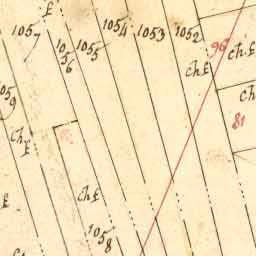 £
1057
1056
1055
1054
1053
1052
96
ch £
ch £
ch
81
1059
ch £
ch £
£
1058